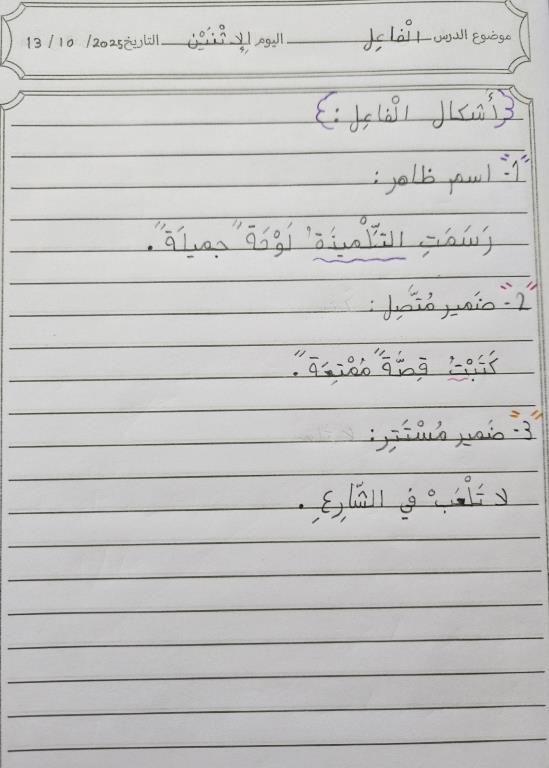 موضوع الدرس الْفاعِل اليوم الِإثْنَيْن التاريخ 2025/ 10 / 13
{أَشكال الْفاعِل:}
"1"- اسم ظاهر:
رَسَمَتِ التِّلْميذَةُ لَوْحَةً جميلَةً.
"2"- ضَمير مُتَّصِل:
كَتَبْتُ قِصَّةً مُمْتِعَةً.
"3"- ضَمير مُسْتَتِر:
لا تَلْعَبْ في الشّارِعِ.